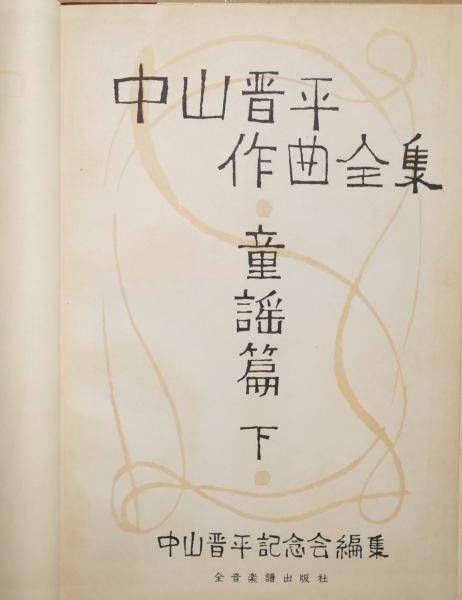 中山晋平
作曲全集
童謡篇 下
中山晋平記念会編集
全音楽譜出版社